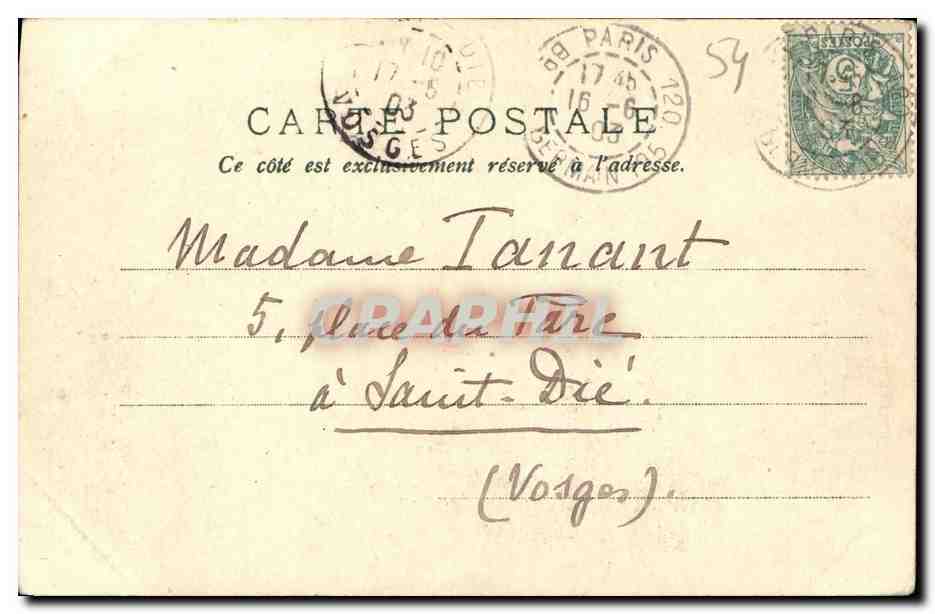 PARIS 120
17 45
16 - 6
03
54
POSTES
5
17
03
VOSGES
CARTE POSTALE
Ce côté est exclusivement réservé à l'adresse.
Madame Tanant
5, place du Parc
CPARAMA
à Saint-Dié.
(Vosges).